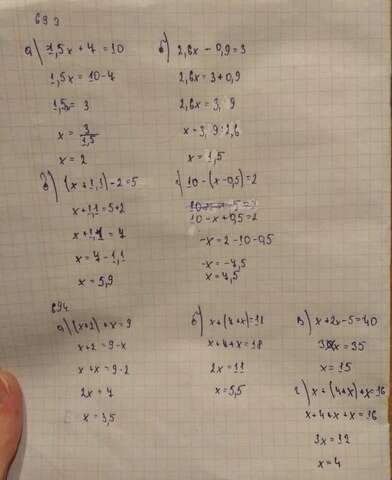 693
а) 1,5x + 7 = 10
1,5x = 10-7
1,5x = 3
x = 3/1,5
x = 2
б) 2,6x - 0,9 = 3
2,6x = 3+0,9
2,6x = 3,9
x = 3,9:2,6
x = 1,5
в) (x+1,1)-2=5
x+1,1=5+2
x+1,1 = 7
x = 7-1,1
x = 5,9
г) 10-(x-0,5)=2
10-x+0,5=2
-x = 2-10-0,5
-x = -7,5
x = 7,5
694
а) (x+2)+x=9
x+2=9-x
x+x=9-2
2x=7
x=3,5
б) x+(7+x)=18
x+7+x=18
2x=11
x=5,5
в) x+2x-5=40
3x=35
x=15
г) x+(4+x)+x=16
x+4+x+x=16
3x=12
x=4